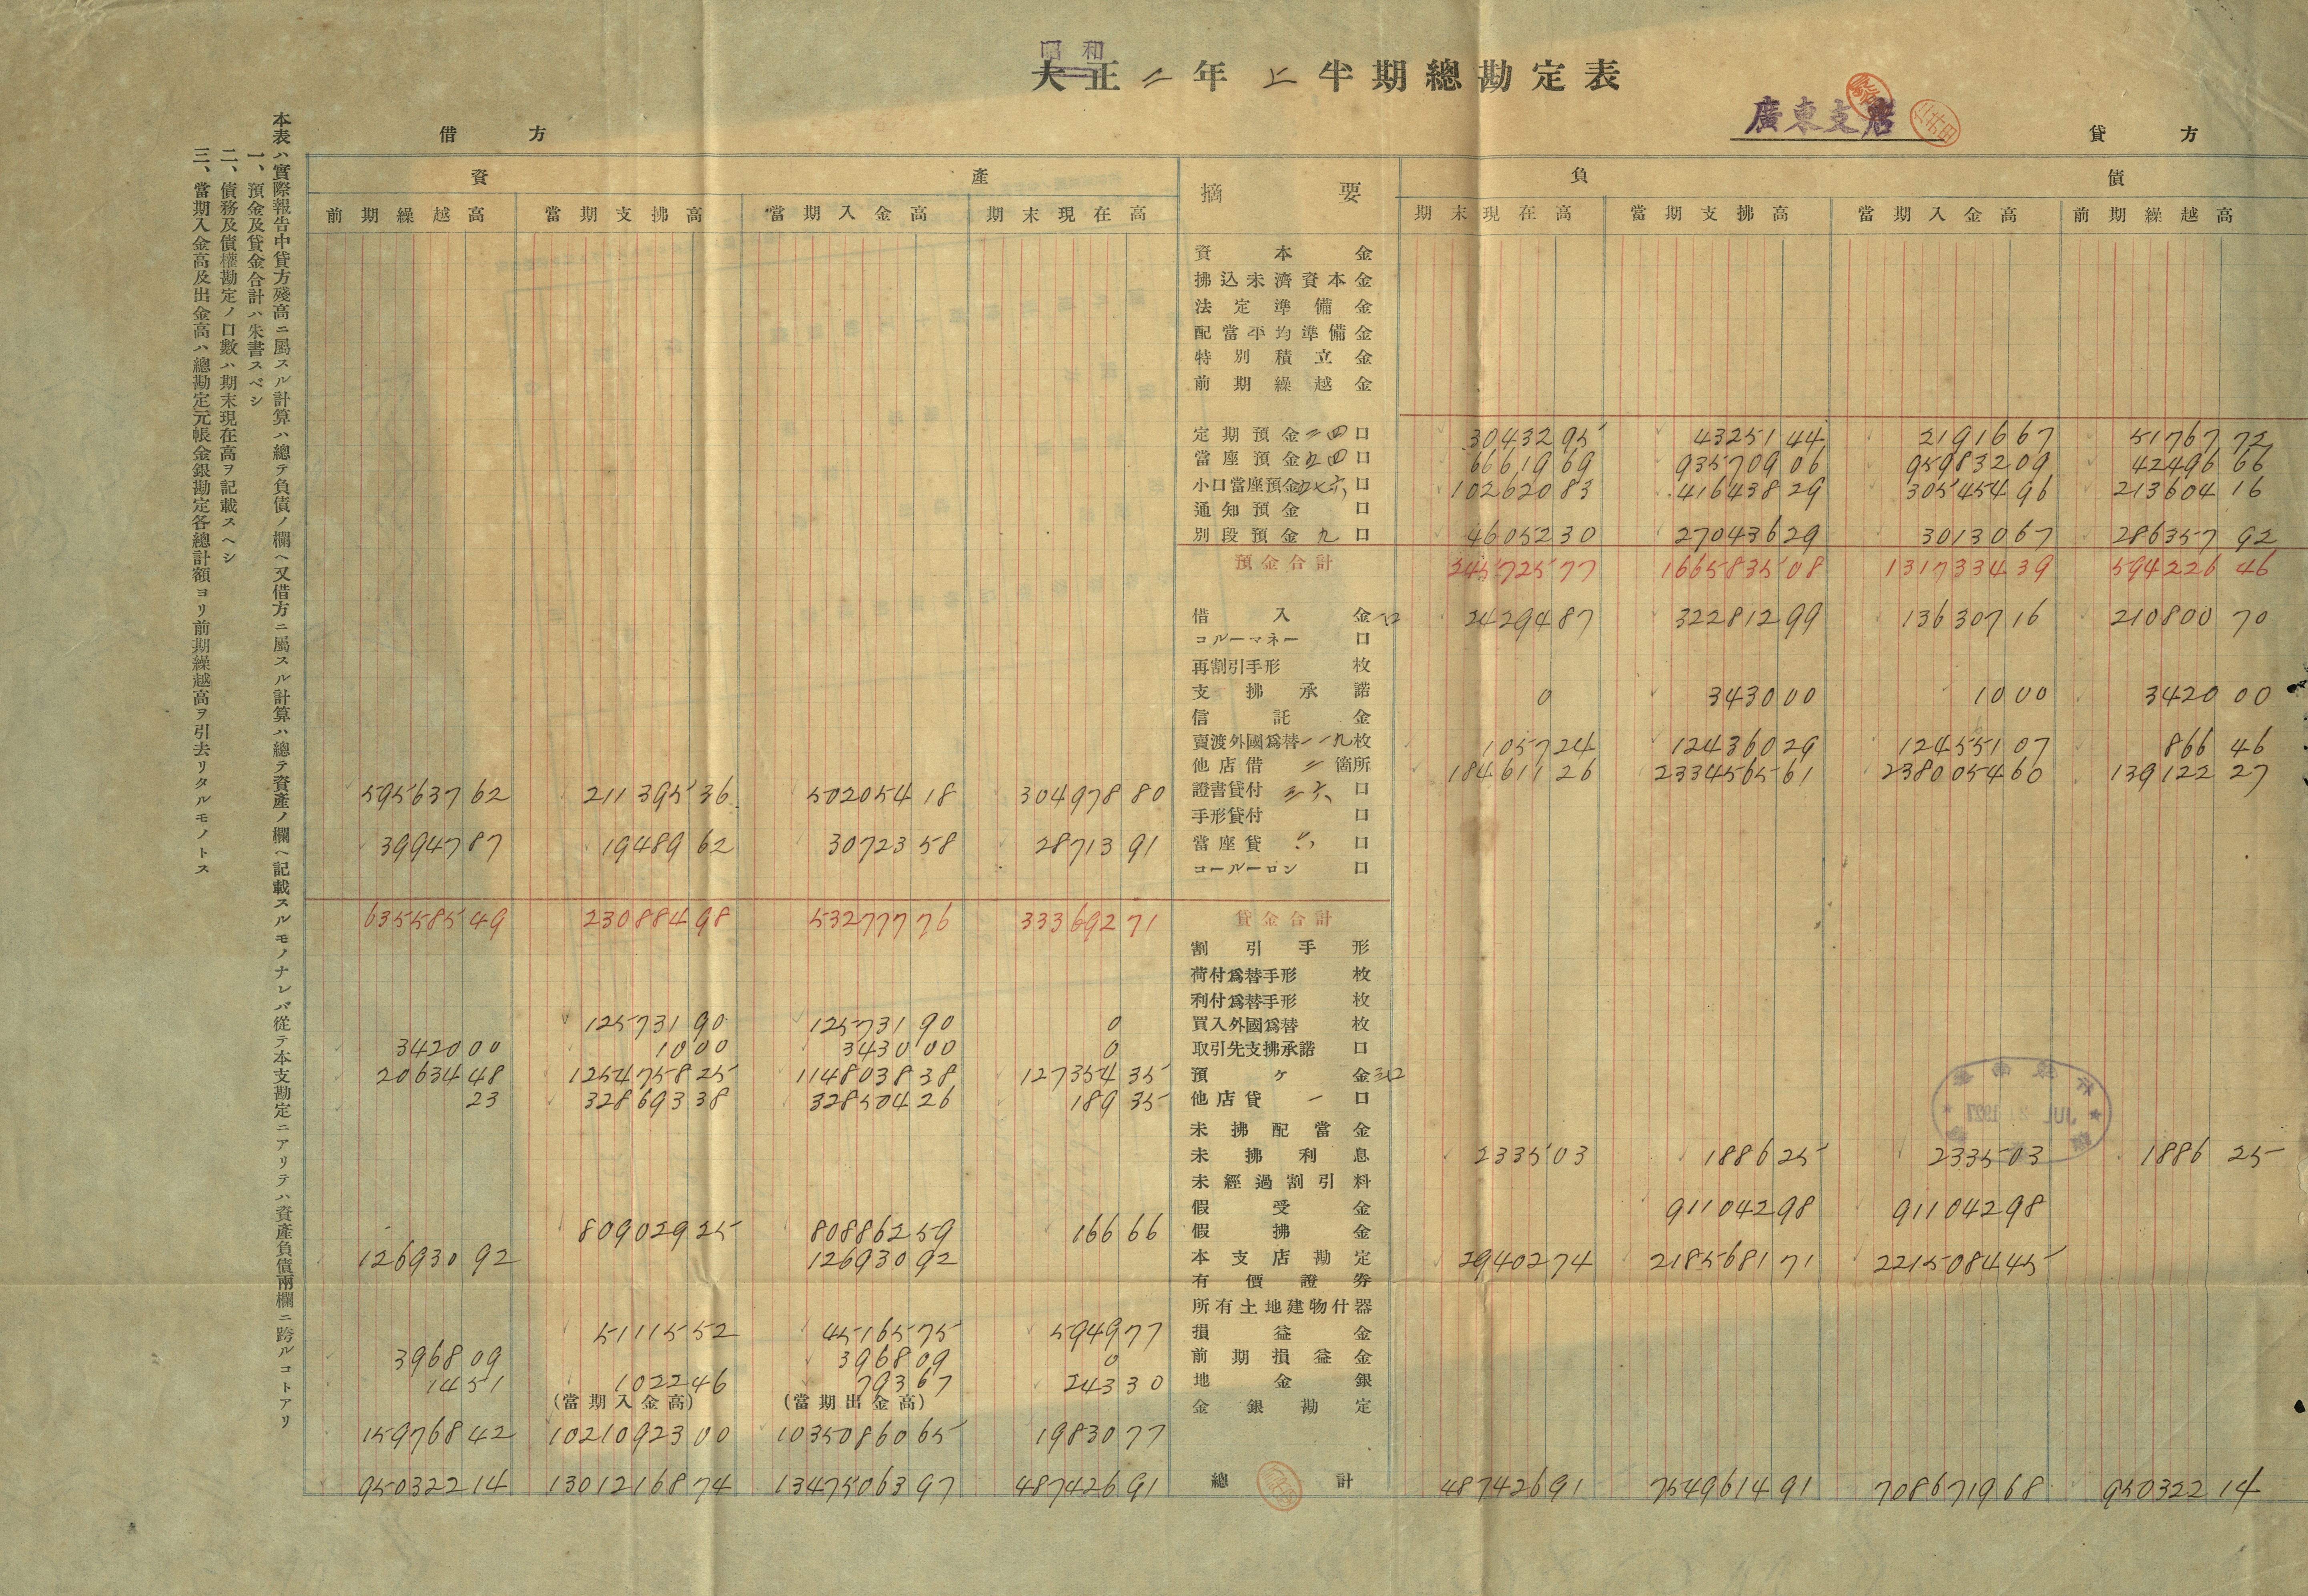 昭和
大正二年上半期總勘定表
廣東支店
借方
貸方
資產
摘要
負債
前期繰越高 當期支拂高 當期入金高 期末現在高 期末現在高 當期支拂高 當期入金高 前期繰越高
資本金
拂込未濟資本金
法定準備金
配當平均準備金
特別積立金
前期繰越金
定期預金二四口 30432 95 43251 44 21916 67 51767 72
當座預金九四口 66619 69 935709 06 959832 09 42496 66
小口當座預金 口 102620 83 416438 29 305454 96 213604 16
通知預金 口
別段預金九口 46052 30 270436 29 30130 67 286357 92
預金合計 245725 77 1665835 08 1317334 39 594226 46
借入金 口 24294 87 322812 99 136307 16 210800 70
コールーマネー 口
再割引手形 枚
支拂承諾 0 3430 00 10 00 3420 00
信託金
賣渡外國爲替一一九枚 1057 24 124360 29 124551 07 866 46
他店借二箇所 184611 26 2334565 61 2380054 60 139122 27
595637 62 211395 36 502054 18 304978 80 證書貸付三六口
手形貸付 口
39947 87 19489 62 30723 58 28713 91 當座貸 口
コールーロン 口
635585 49 230884 98 532777 76 333692 71 貸金合計
割引手形
荷付爲替手形 枚
利付爲替手形 枚
125731 90 125731 90 0 買入外國爲替 枚
3420 00 10 00 3430 00 0 取引先支拂承諾 口
20634 48 1254758 25 1148038 38 127354 35 預ケ金三口
23 328693 38 328504 26 189 35 他店貸一口
未拂配當金
未拂利息 2335 03 1886 25 2335 03 1886 25
未經過割引料
假受金 911042 98 911042 98
809029 25 808862 59 166 66 假拂金
126930 92 126930 92 本支店勘定 29402 74 2185681 71 2215084 45
有價證券
所有土地建物什器
51115 52 45165 75 5949 77 損益金
3968 09 3968 09 0 前期損益金
14 51 1022 46 793 67 243 30 地金銀
(當期入金高) (當期出金高)
159768 42 10210923 00 10350860 65 19830 77 金銀勘定
950322 14 13012168 74 13475063 97 487426 91 總計 487426 91 7549614 91 7086719 68 950322 14
本表ハ實際報告中貸方殘高ニ屬スル計算ハ總テ負債ノ欄ヘ又借方ニ屬スル計算ハ總テ資產ノ欄ヘ記載スルモノナレバ從テ本支勘定ニアリテハ資產負債兩欄ニ跨ルコトアリ
一、預金及貸金合計ハ朱書スベシ
二、債務及債權勘定ノ口數ハ期末現在高ヲ記載スヘシ
三、當期入金高及出金高ハ總勘定元帳金銀勘定各總計額ヨリ前期繰越高ヲ引去リタルモノトス